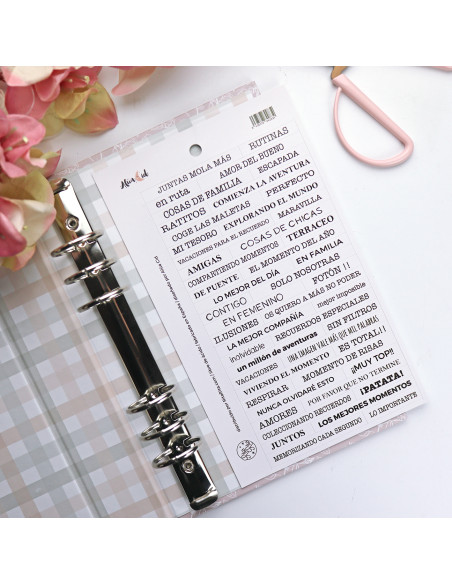 JUNTAS MOLA MÁS RUTINAS
en ruta AMOR DEL BUENO
COSAS DE FAMILIA ESCAPADA
RATITOS COMIENZA LA AVENTURA
COGE LAS MALETAS PERFECTO
MI TESORO EXPLORANDO EL MUNDO
VACACIONES PARA EL RECUERDO MARAVILLA
AMIGAS COSAS DE CHICAS
COMPARTIENDO MOMENTOS TERRACEO
DE PUENTE EL MOMENTO DEL AÑO
LO MEJOR DEL DÍA EN FAMILIA
CONTIGO SOLO NOSOTRAS
EN FEMENINO FOTÓN !!
ILUSIONES OS QUIERO A MÁS NO PODER
LA MEJOR COMPAÑÍA major imposible
inolvidable RECUERDOS ESPECIALES
un millón de aventuras SIN FILTROS
VACACIONES ¡UNA IMAGEN VALE MÁS QUE MIL PALABRAS
VIVIENDO EL MOMENTO ES TOTAL!!
RESPIRAR MOMENTO DE RISAS
NUNCA OLVIDARÉ ESTO ¡MUY TOP!!
AMORES POR FAVOR QUE NO TERMINE
COLECCIONANDO RECUERDOS ¡PATATA!
JUNTOS LOS MEJORES MOMENTOS
MEMORIZANDO CADA SEGUNDO LO IMPORTANTE